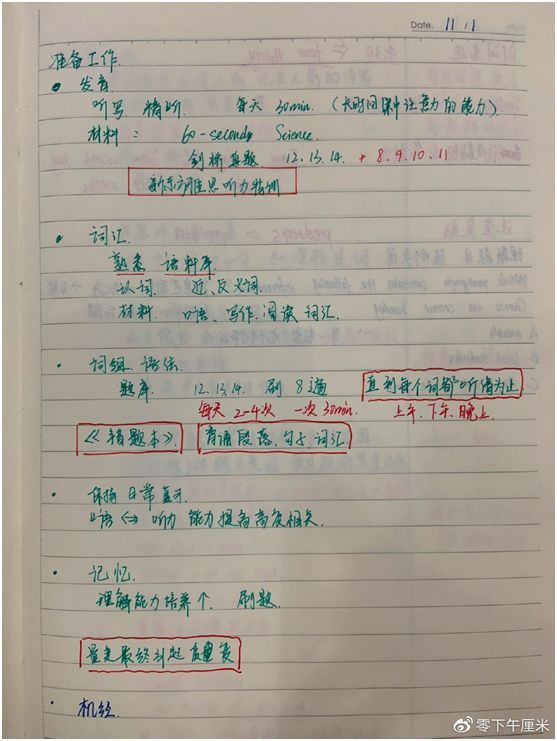 Date. 11.11
准备工作
• 发音
听写 精听 每天 30min.（长时间集中注意力的能力）
材料: 60-seconds Science.
剑桥真题 12.13.14. + 8.9.10.11
新东方雅思听力特训
• 词汇
熟悉 语料库
认词 近、反义词
材料. 口语、写作、阅读 词汇.
• 词组、语法
题库. 12.13.14. 刷 8遍 直到每个词都可听清为止
每天 2-4次 一次 30min. 上午、下午、晚上.
《错题本》. 背诵段落、句子、词汇
• 保持日常复习.
口语 <-> 听力 能力提高高度相关.
• 记忆.
理解能力培养 刷题.
量变最终引起质变
• 机经.
零下午厘米